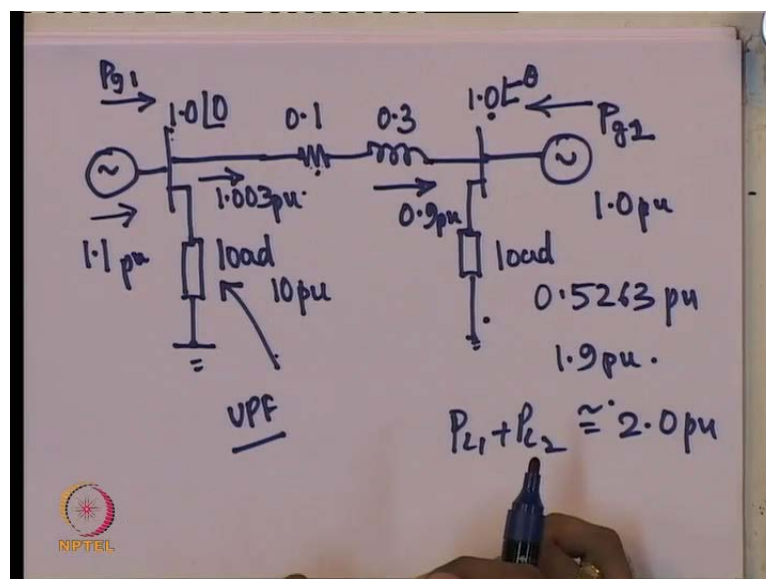 Pg1
1.0∠0
0.1
0.3
1.0∠-θ
Pg2
1.003 pu.
0.9 pu
1.0 pu
1.1 pu
load
10 pu
load
0.5263 pu
1.9 pu.
UPF
PL1 + PL2 ≅ 2.0 pu
NPTEL